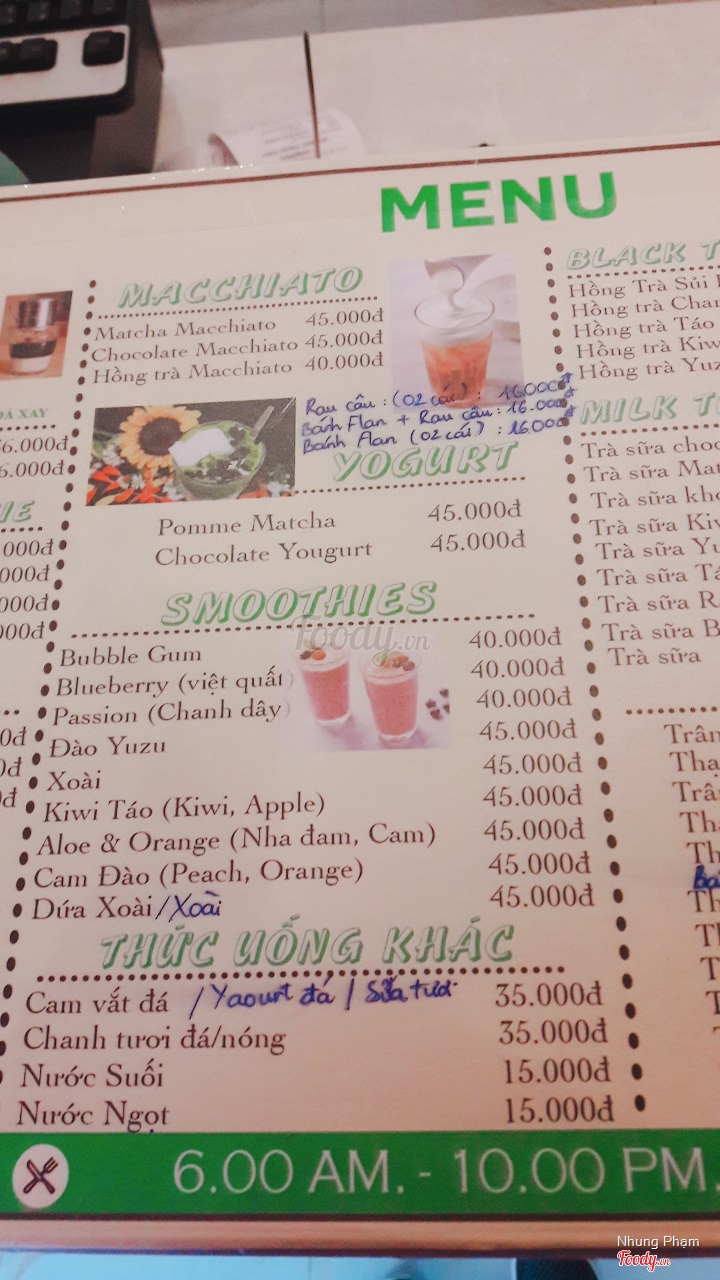 MENU
MACCHIATO
Matcha Macchiato 45.000đ
Chocolate Macchiato 45.000đ
Hồng trà Macchiato 40.000đ
Rau câu : (02 cái) : 16000đ
Bánh Flan + Rau câu : 16.000đ
Bánh Flan (02 cái) : 16.000đ
YOGURT
Pomme Matcha 45.000đ
Chocolate Yougurt 45.000đ
SMOOTHIES
Foody.vn
Bubble Gum 40.000đ
Blueberry (việt quất 40.000đ
Passion (Chanh dây) 40.000đ
Đào Yuzu 45.000đ
Xoài 45.000đ
Kiwi Táo (Kiwi, Apple) 45.000đ
Aloe & Orange (Nha đam, Cam) 45.000đ
Cam Đào (Peach, Orange) 45.000đ
Dứa Xoài/Xoài 45.000đ
THỨC UỐNG KHÁC
Cam vắt đá / Yaourt đá / Sữa tươi 35.000đ
Chanh tươi đá/nóng 35.000đ
Nước Suối 15.000đ
Nước Ngọt 15.000đ
BLACK
Hồng Trà Sủi
Hồng trà
Hồng trà Táo
Hồng trà
Hồng trà
MILK
Trà sữa
Trà sữa
Trà sữa
Trà sữa
Trà sữa
Trà sữa
Trà sữa
Trà sữa
Trà sữa
XAY
6.000đ
000đ
000đ
000đ
6.00 AM. - 10.00 PM.
Nhung Phạm
Foody.vn